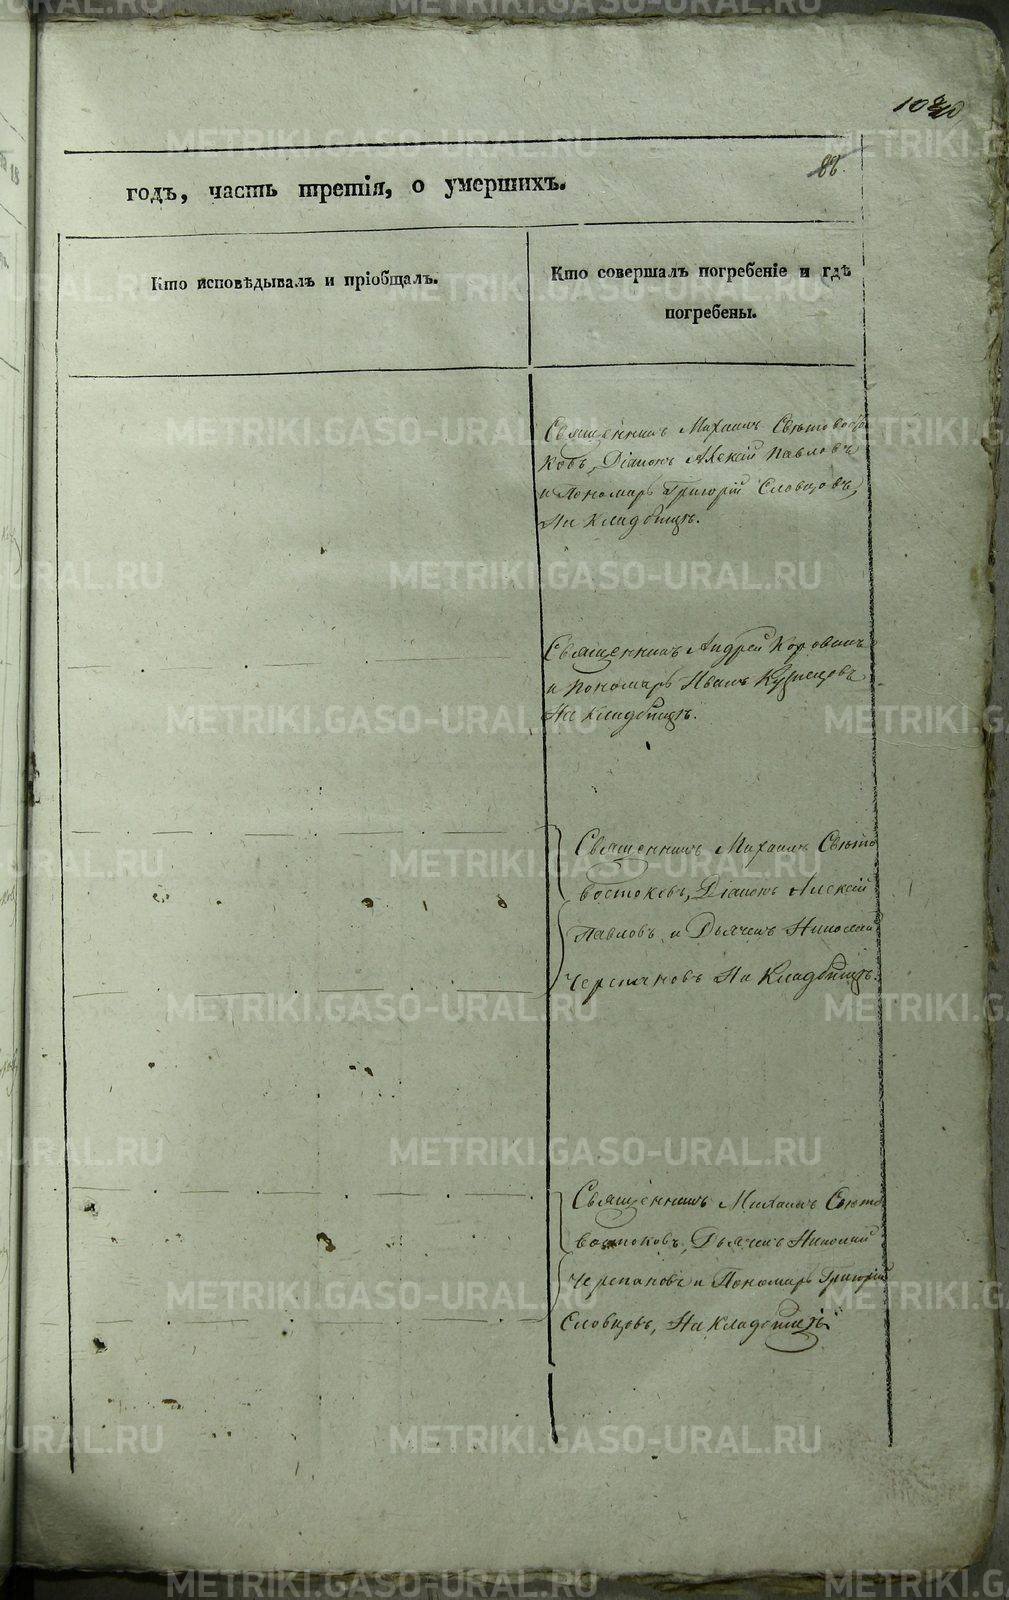 88.
годъ, часть третія, о умершихъ.
Кто исповѣдывалъ и пріобщалъ.
Кто совершалъ погребеніе и гдѣ
погребены.
Священникъ Михаилъ Свѣтовосто
ковъ, Діаконъ Алексій Павловъ
и Пономарь Григорій Словцовъ,
На Кладбищѣ.
Священникъ Андрей
и Пономарь Иванъ Кузнецовъ
На Кладбищѣ.
Священникъ Михаилъ Свѣто
востоковъ, Діаконъ Алексій
Павловъ и Дьячекъ Николай
Черепановъ На Кладбищѣ.
Священникъ Михаилъ Свѣто
востоковъ, Дьячекъ Николай
Черепановъ и Пономарь Григорій
Словцовъ, На Кладбищѣ
METRIKI.GASO-URAL.RU